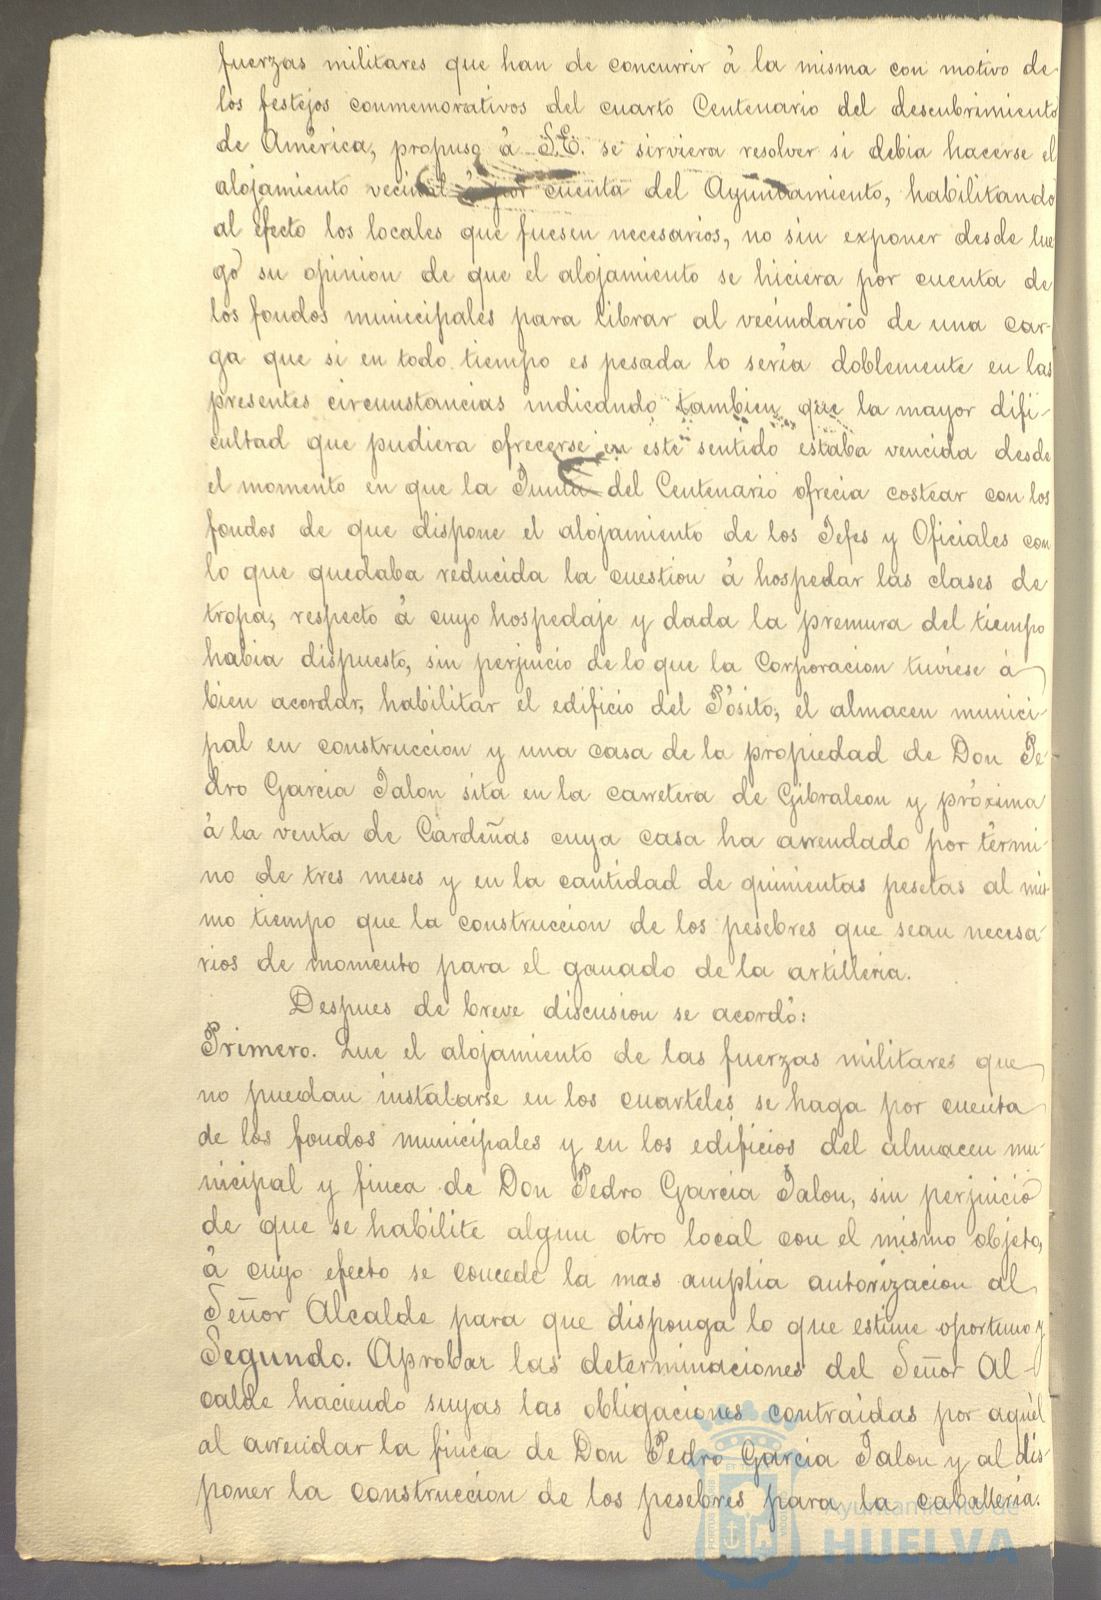 fuerzas militares que han de concurrir á la misma con motivo de
los festejos conmemorativos del cuarto Centenario del descubrimiento
de América, propuso á S.E. se sirviera resolver si debia hacerse el
alojamiento vecinal ó por cuenta del Ayuntamiento, habilitando
al efecto los locales que fuesen necesarios, no sin exponer desde lue
go su opinion de que el alojamiento se hiciera por cuenta de
los fondos municipales para librar al vecindario de una car-
ga que si en todo tiempo es pesada lo seria doblemente en las
presentes circunstancias indicando tambien que la mayor difi-
cultad que pudiera ofrecerse en este sentido estaba vencida desde
el momento en que la Junta del Centenario ofrecia costear con los
fondos de que dispone el alojamiento de los Jefes y Oficiales con
lo que quedaba reducida la cuestion á hospedar las clases de
tropa, respecto á cuyo hospedaje y dada la premura del tiempo
habia dispuesto, sin perjuicio de lo que la Corporacion tuviese á
bien acordar, habilitar el edificio del Pósito, el almacen munici-
pal en construccion y una casa de la propiedad de Don Pe-
dro Garcia Jalon sita en la carretera de Gibraleon y próxima
á la venta de Cardeñas cuya casa ha arrendado por térmi-
no de tres meses y en la cantidad de quinientas pesetas al mis-
mo tiempo que la construccion de los pesebres que sean necesa-
rios de momento para el ganado de la artilleria.
Despues de breve discusion se acordó:
Primero. Que el alojamiento de las fuerzas militares que
no puedan instalarse en los cuarteles se haga por cuenta
de los fondos municipales y en los edificios del almacen mu-
nicipal y finca de Don Pedro Garcia Jalon, sin perjuicio
de que se habilite algun otro local con el mismo objeto,
á cuyo efecto se concede la mas amplia autorizacion al
Señor Alcalde para que disponga lo que estime oportuno y
Segundo. Aprobar las determinaciones del Señor Al-
calde haciendo suyas las obligaciones contraidas por aquel
al arrendar la finca de Don Pedro Garcia Jalon y al dis-
poner la construccion de los pesebres para la caballeria.
Ayuntamiento de
HUELVA